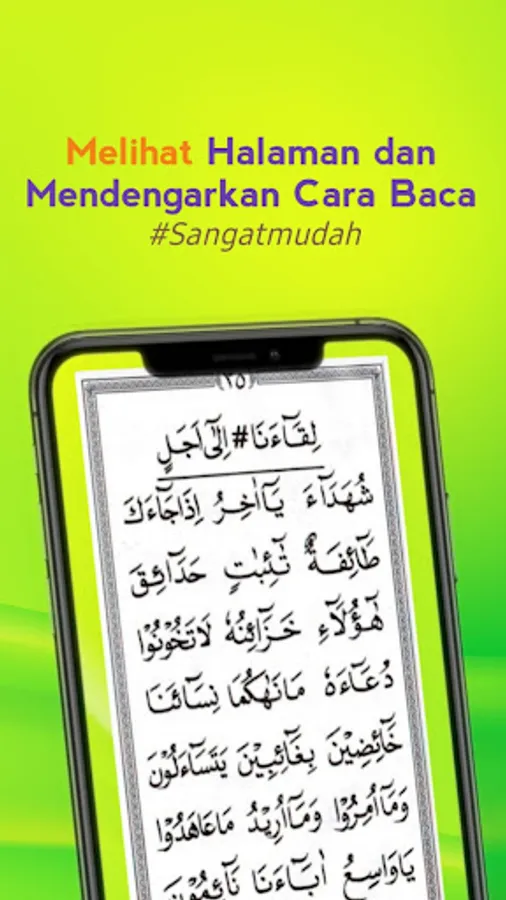 Melihat Halaman dan
Mendengarkan Cara Baca
#Sangatmudah
(٢٥)
لِقَآءَنَا # اِلٰٓى اَجَلٍ
شُهَدَآءَ يَآاٰخِرُ اِذَاجَآءَكَ
طَآئِفَةٌ تٰٓئِبٰتٍ حَدَآئِقَ
هٰٓؤُلَآءِ خَزَآئِنُهٗ لَاتَخُوْنُوْا
دُعَآءَهٗ مَانَهٰكُمَا نِسَآئَنَا
خَآئِضِيْنَ بِغَآئِبِيْنَ يَتَسَآءَلُوْنَ
وَمَآاُمِرُوْا وَمَآاُرِيْدُ مَاعَاهَدُوْا
يَاوَاسِعُ اٰبَآءَنَا نَآئِمُوْنَ